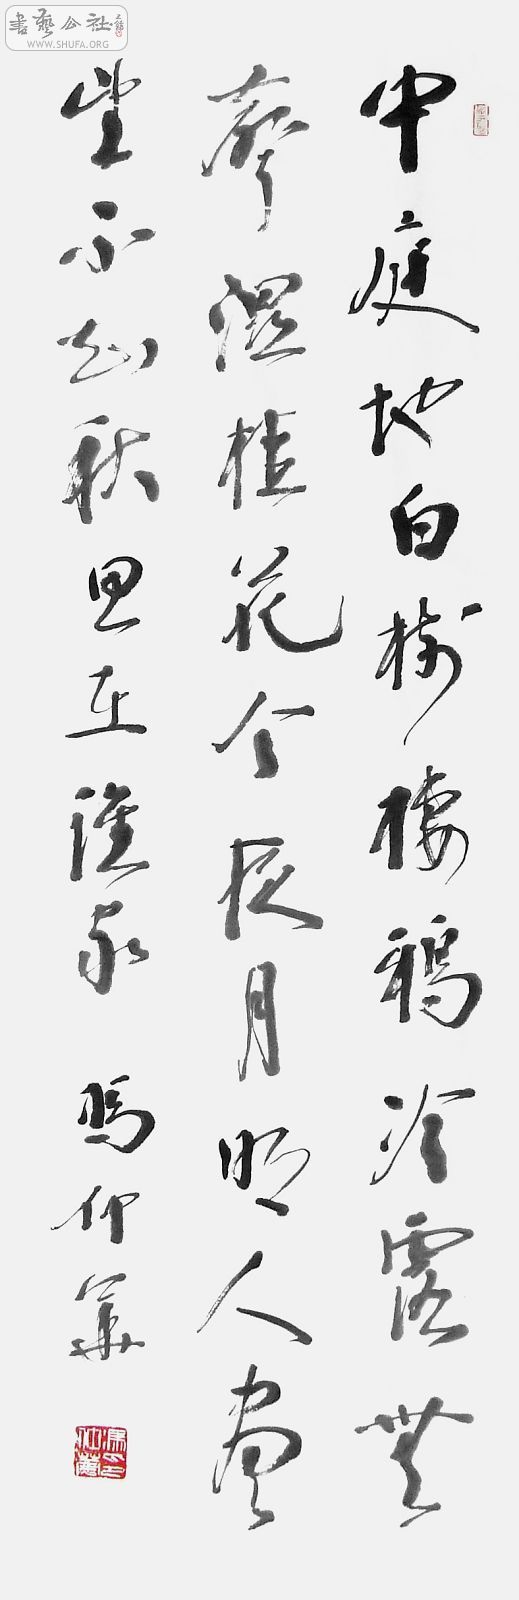 中庭地白樹棲鴉冷露無
聲濕桂花今夜月明人盡
望不知秋思在誰家 馮仰華
書藝公社
WWW.SHUFA.ORG